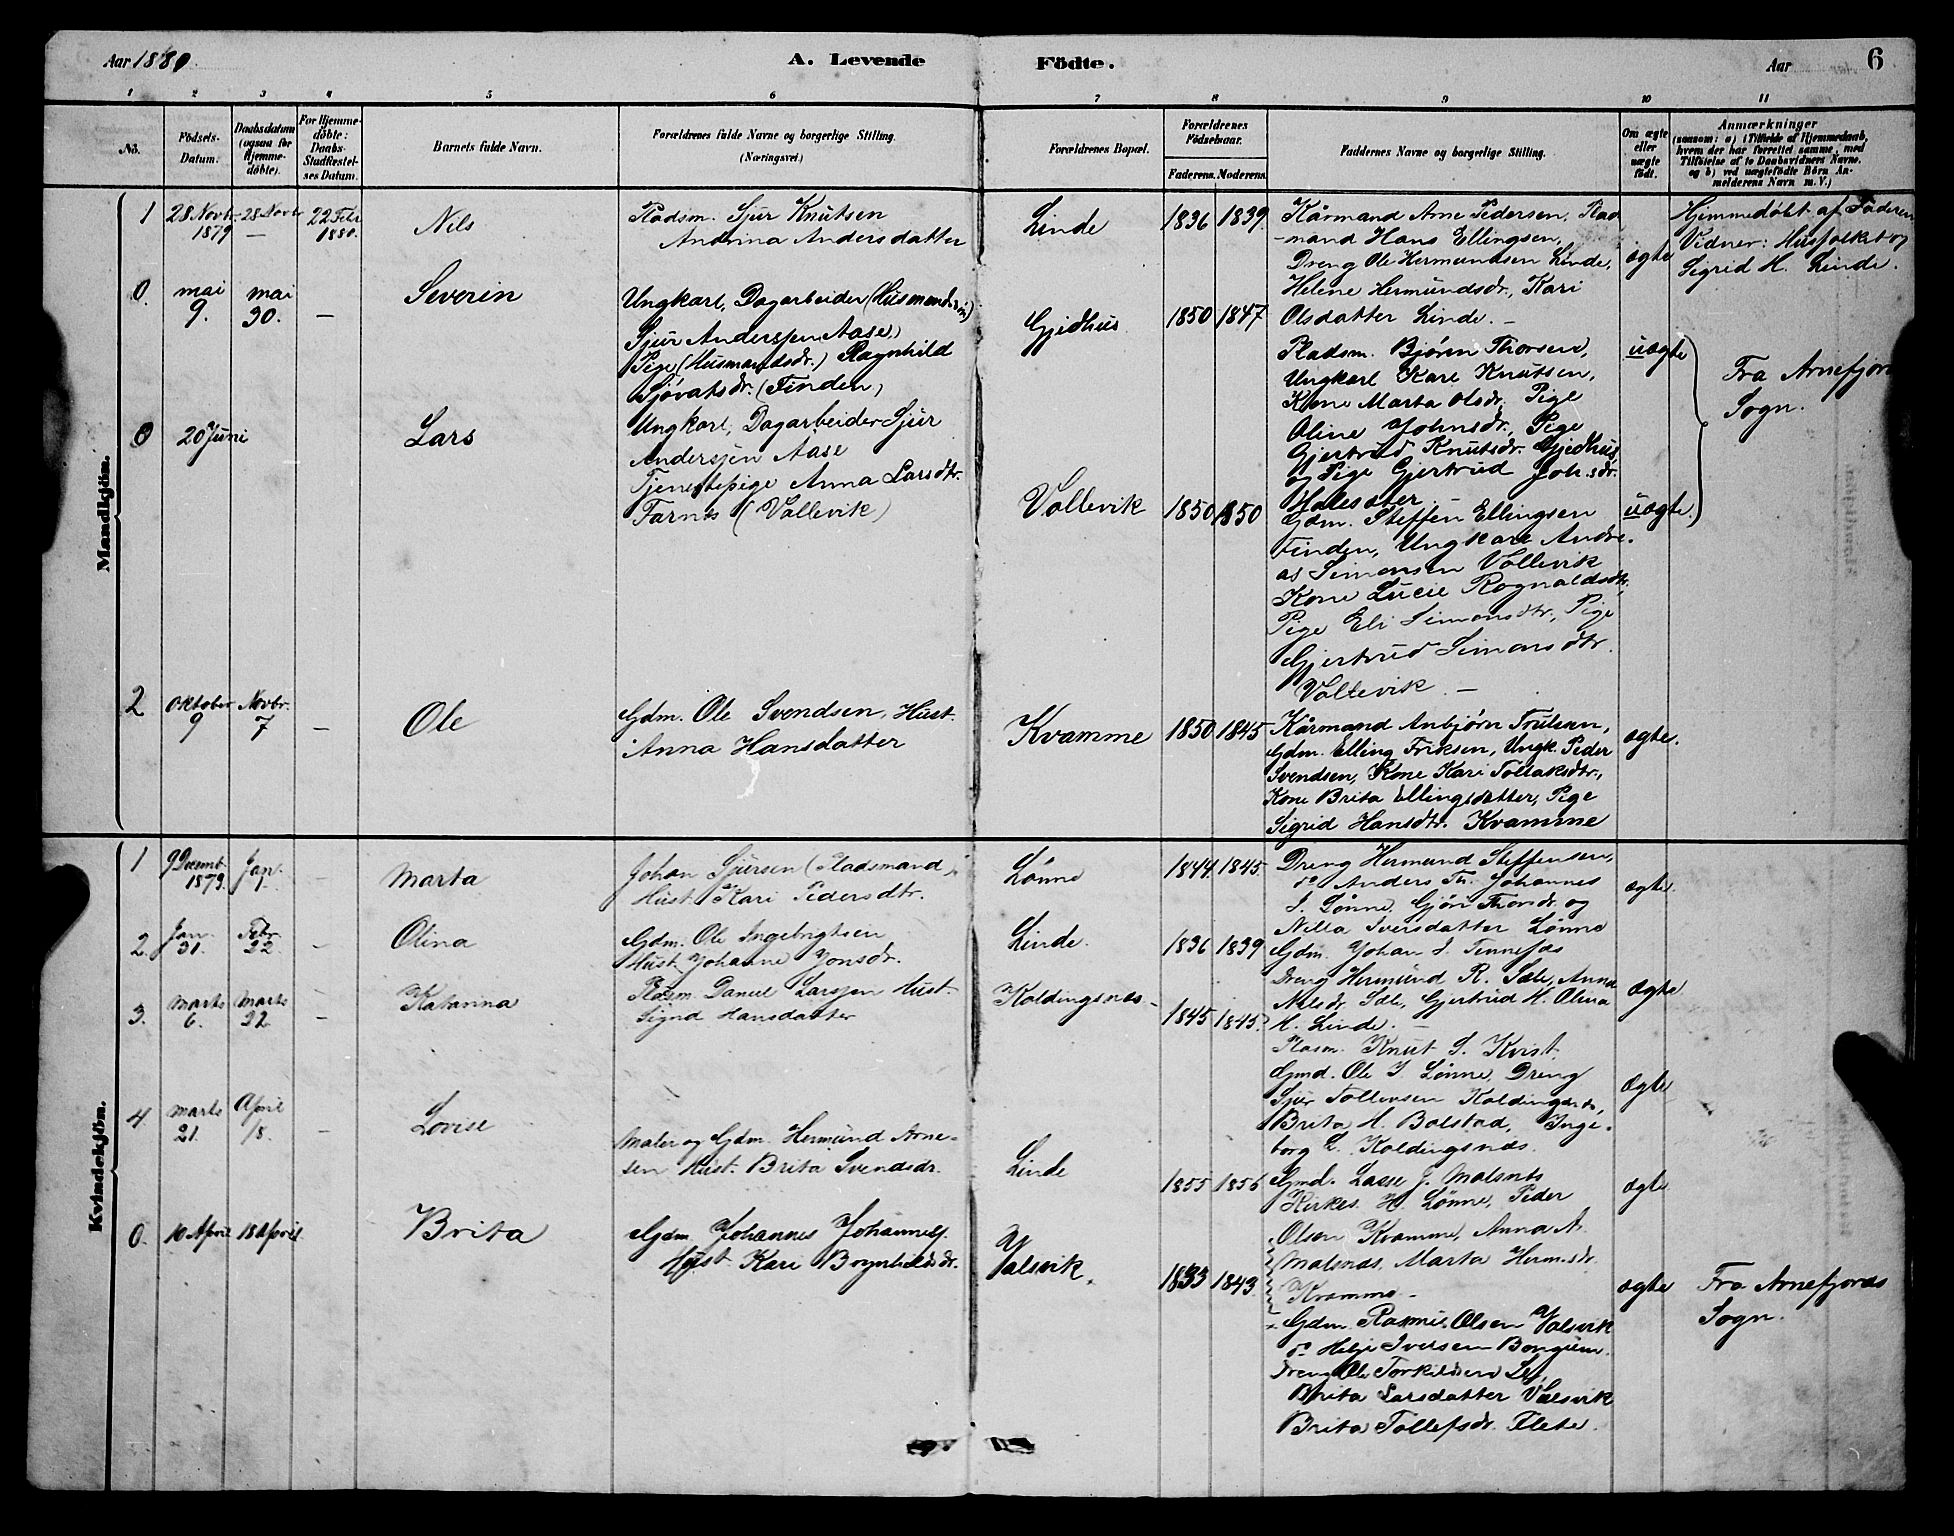 Aar 1880.
A. Levende Födte.
Aar
6
1 2 3 4 5 6 7 8 9 10 11
No.
Födsels-Datum.
Daabsdatum (ogsaa for Hjemmedøbte).
For Hjemmedøbte: Daabs-Stadfæstelses Datum.
Barnets fulde Navn.
Forældrenes fulde Navne og borgerlige Stilling.
(Næringsvei.)
Forældrenes Bopæl.
Forældrenes Födselsaar.
Faderens. Moderens.
Faddernes Navne og borgerlige Stilling.
Om ægte eller uægte født.
Anmærkninger
(saasom: a) i Tilfælde af Hjemmedaab, hvem der har forrettet samme, med Tilföielse af to Daabsvidners Navne, og b) ved uægtefödte Börn Anmelderens Navn m. V.)
Mandkjön.
1 28 Novbr 1879 28 Novbr — 22 Febr 1880.
Nils
Pladsm. Sjur Knutsen
Andrina Andersdatter
Linde
1836 1839
Kårmand Arne Pedersen, Plad
-mand Hans Ellingsen,
Dreng Ole Hermundsen Linde,
Helene Hermundsdr., Kari
Olsdatter Linde. —
ægte
Hjemmedøbt af Faderen
Vidner: Husfolket og
Sigrid H. Linde.
0. mai 9. mai 30. —
Severin
Ungkarl, Dagarbeider (Husmandssøn)
Sjur Anderssen Aase,
Pige (Husmandsdr.) Ragnhild
Sjøvatsdr. (Finden)
Gjedhus
1850 1847
Pladsm. Bjørn Thorsen,
Ungkarl Karl Knutsen,
Kone Marta Olsdr. Pige
Oline Johnsdr., Pige
Gjertrud Knutsdr. Gjedhus
og Pige Gjertrud Joh.sdr.
uægte
Fra Arnefjord
Sogn.
0 20 Juni
Lars
Ungkarl, Dagarbeider Sjur
Anderssen Aase
Tjenestepige Anna Larsdtr.
Farnes (Vollevik)
Vollevik
1850 1850
Gdm. Steffen Ellingsen
Finden, Ungkarl Andre-
as Simonsen Vollevik
Kone Lucie Rognaldsdtr.,
Pige Eli Simonsdtr., Pige
Gjertrud Simonsdtr.
Vollevik. —
uægte.
2 Oktober 9 Novbr. 7 —
Ole
Gdm. Ole Svendsen, Hust.
Anna Hansdatter
Kvamme
1850 1845
Kårmand Anbjørn Trulsen,
Gdm. Elling Eriksen, Ungk. Peder
Svendsen, Kone Kari Tollaksdtr.,
Kone Brita Ellingsdatter, Pige
Sigrid Hansdtr. Kvamme
ægte.
Kvindekjön.
1 9 Decemb. 1879 Jan. 1. —
Marta
Johan Sjursen (Pladsmand)
Hust. Kari Pedersdtr.
Lønne
1844. 1845.
Dreng Hermund Steffensen,
do Anders Th. Johannes
J. Lønne, Gjøri Thorsdr. og
Nilla Iversdatter Lønne
ægte
2. Jan. 31. Febr. 22. —
Olina
Gdm. Ole Ingebrigtsen
Hust. Johanne Jonsdr.
Linde.
1836 1839
Gdm. Johan J. Tennefos
Dreng Hermund R. Sæle, Anna
Nilsdr. Sæle, Gjertrud H. Olina
H. Linde. —
ægte
3. Marts 6. Marts 22. —
Katarina
Pladsm. Daniel Larssen Hust.
Sigrid Hansdatter
Koldingsnæs —
1845 1845.
Plasm. Knut S. Kvist.
Gmd. Ole J. Lønne, Dreng
Sjur Tollevsen Koldingsnæs,
Brita H. Bolstad, Inge-
borg L. Koldingsnæs.
ægte
4. Marts 21. April 18. —
Lovise
Maler og Gdm. Hermund Arne-
sen Hust. Brita Svendsdr.
Linde
1855 1856
Gmd. Lasse J. Malsnes
Kirkes. H. Lønne, Peder
Olsen Kvamme, Anna A.
Malsnæs, Marta Hermsdr.
Kvamme —
ægte
0. 10 April 18 April
Brita
Gdm. Johannes Johanness.
Hust. Kari Brynhildsdr.
Valsvik.
1833 1843
Gdm. Rasmus Olsen Valsvik
do Helje Iversen Bongum.
Dreng Ole Torkildsen
Brita Larsdatter Valsvik
Brita Tollefsdr. Flete.
ægte
Fra Arnefjords
Sogn.